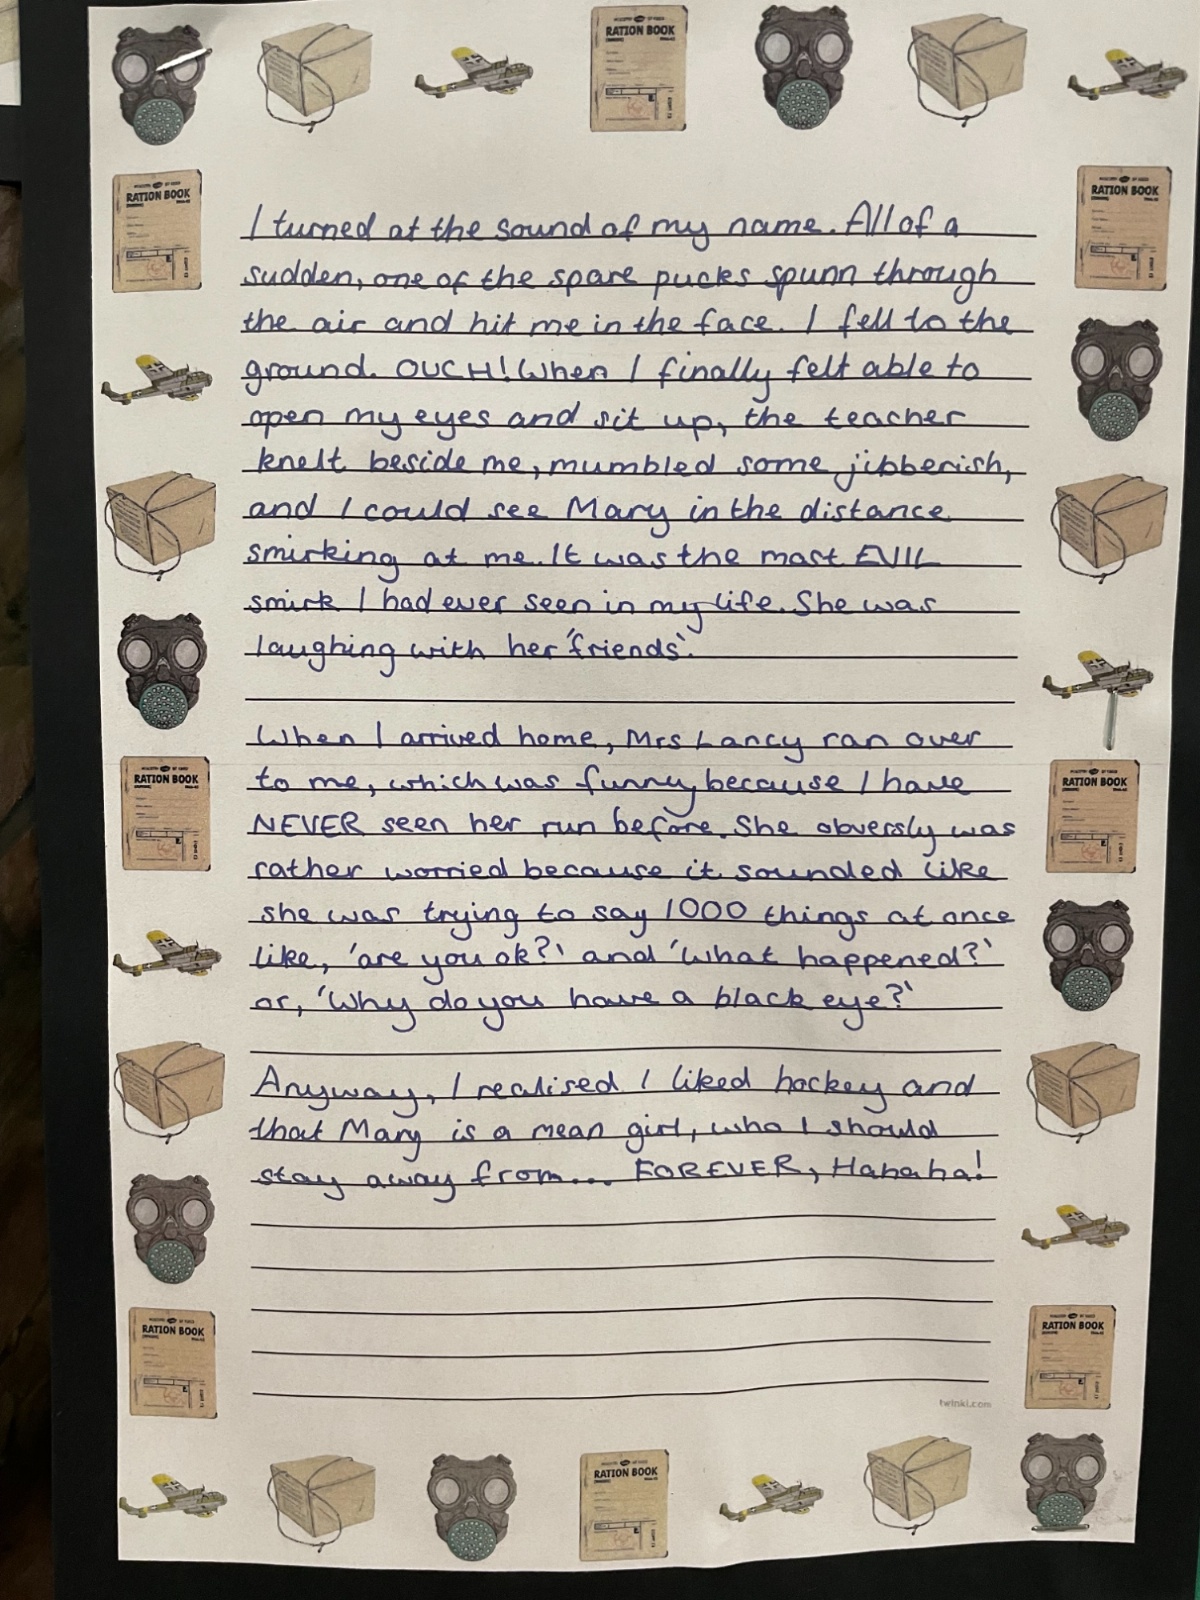 RATION BOOK
RATION BOOK
RATION BOOK
I turned at the sound of my name. All of a
sudden, one of the spare pucks spunn through
the air and hit me in the face. I fell to the
ground. OUCH! When I finally felt able to
open my eyes and sit up, the teacher
knelt beside me, mumbled some jibberish,
and I could see Mary in the distance
smirking at me. It was the most EVIL
smirk I had ever seen in my life. She was
laughing with her 'friends'.
When I arrived home, Mrs Lancy ran over
to me, which was funny because I have
NEVER seen her run before. She obversly was
rather worried because it sounded like
she was trying to say 1000 things at once
like, 'are you ok?' and 'What happened?'
or, 'Why do you have a black eye?'
Anyway, I realised I liked hockey and
that Mary is a mean girl, who I should
stay away from... FOREVER, Hahaha!
RATION BOOK
RATION BOOK
RATION BOOK
RATION BOOK
twinkl.com
RATION BOOK